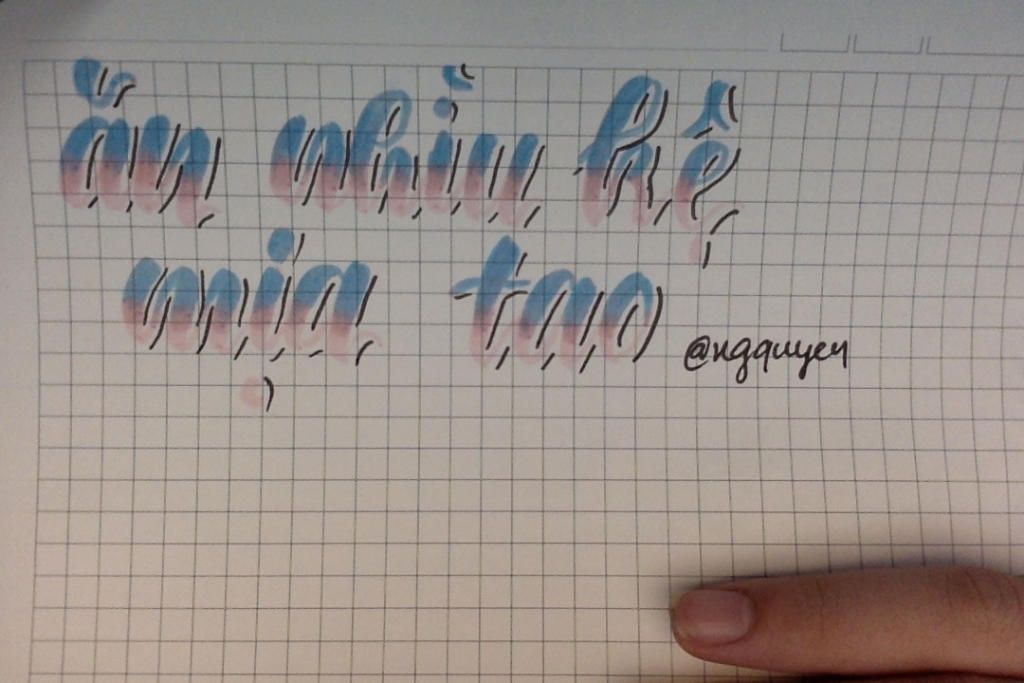 ăn nhìu kệ
mịa tao @ngquyen